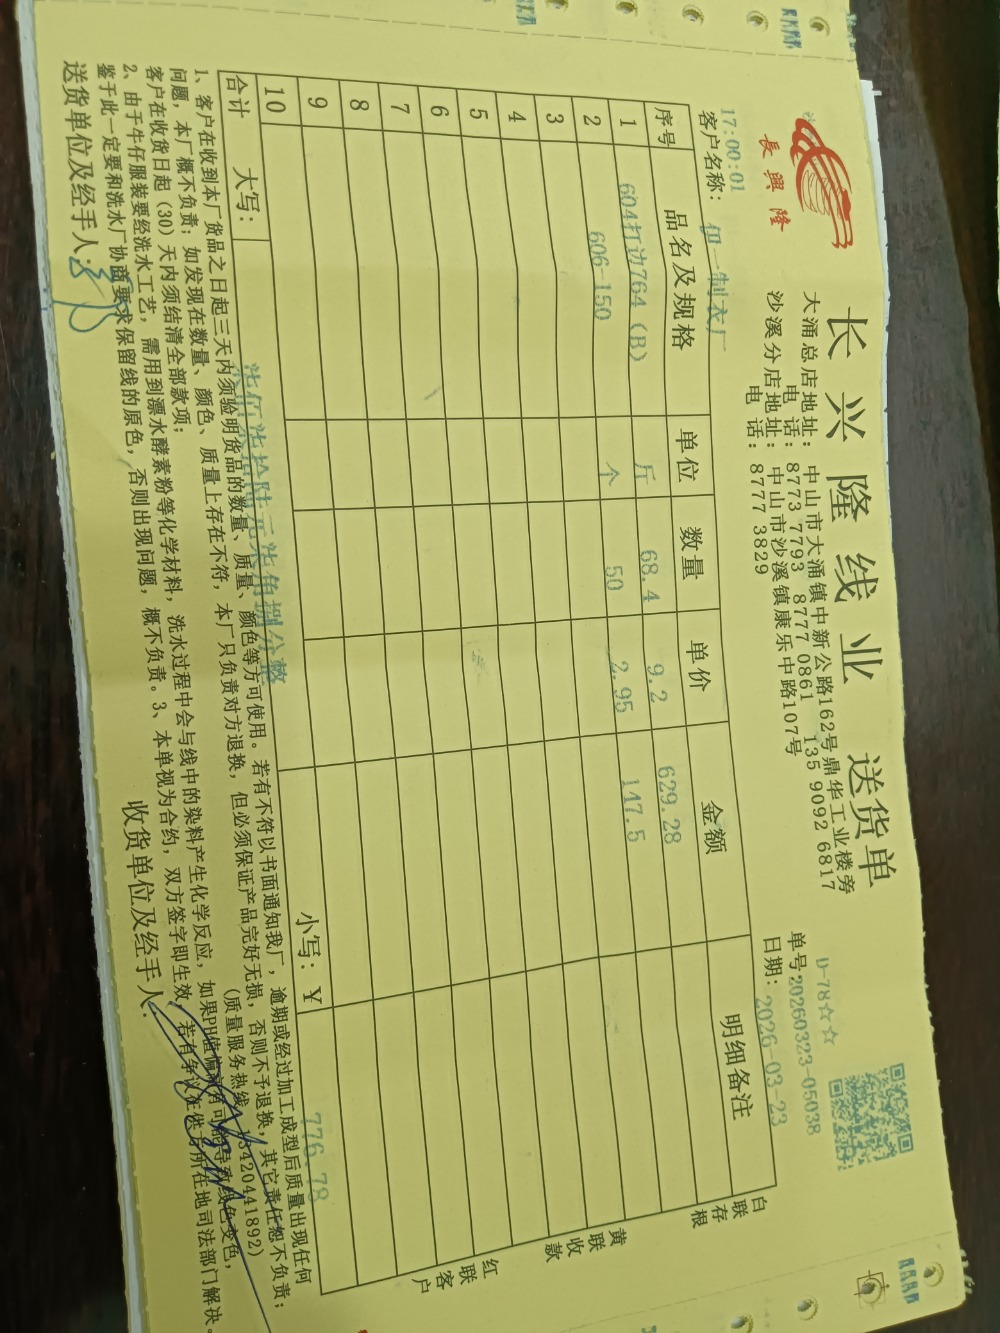 長興隆
长兴隆线业 送货单
大涌总店地址：中山市大涌镇中新公路162号鼎华工业楼旁
电 话：8773 7793 8777 0861 135 9092 6817
沙溪分店地址：中山市沙溪镇康乐中路107号
电 话：8777 3829
D-78☆☆
单号20260323-05038
日期：2026-03-23
17:00:01
客户名称：伊一制衣厂
序号 品名及规格 单位 数量 单价 金额 明细备注
1 604打边764（B） 斤 68.4 9.2 629.28
2 606 150 个 50 2.95 147.5
3
4
5
6
7
8
9
10
合计 大写：柒佰柒拾陆元柒角捌分整 小写：￥ 776.78
白联存根
黄联收款
红联客户
1、客户在收到本厂货品之日起三天内须验明货品的数量、质量、颜色等方可使用。若有不符以书面通知我厂，逾期或经过加工成型后质量出现任何
问题，本厂概不负责；如发现在数量、颜色、质量上存在不符，本厂只负责对方退换，但必须保证产品完好无损，否则不予退换，其它责任恕不负责；
客户在收货日起（30）天内须结清全部款项； （质量服务热线：13420441892）
2、由于牛仔服装要经洗水工艺，需用到漂水酵素粉等化学材料，洗水过程中会与线中的染料产生化学反应，如果PH值偏高有可能导致线色变色，
鉴于此一定要和洗水厂协商要求保留线的原色，否则出现问题，概不负责。3、本单视为合约，双方签字即生效，若有争议在供方所在地司法部门解决。
送货单位及经手人： 收货单位及经手人：